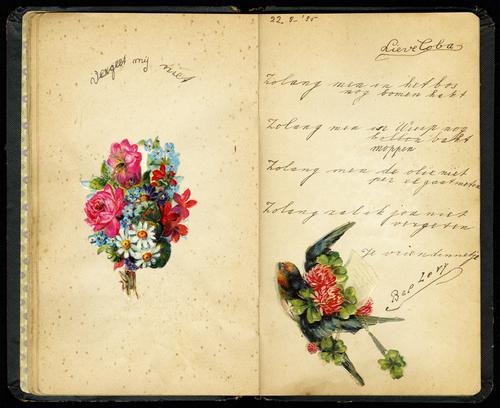 Vergeet mij niet
22-8-'95
Lieve Coba
Zolang men in het bos
nog bomen hakt
Zolang men in Weesp nog
bakt
moppen
Zolang men de olie niet
per el
Zolang zal ik jou niet
vergeten
Je vriendinnetje